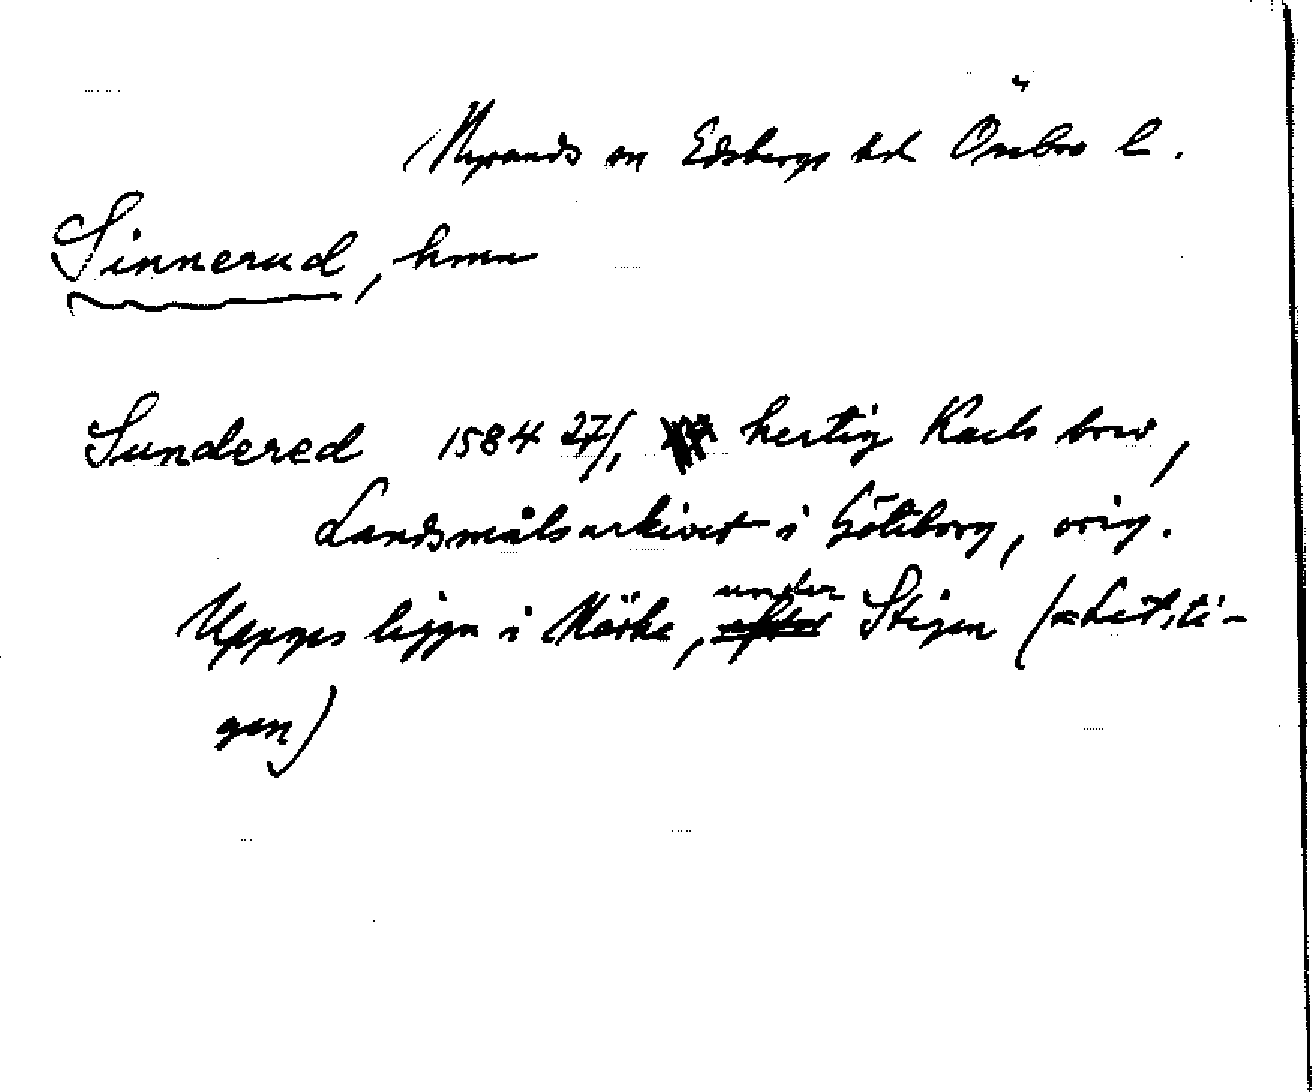 Nysunds sn Edsbergs hd Örebro l.
Sinnerud, hmn
Sundered 1584 27/1 hertig Karls brev,
Landsmålsarkivet i Göteborg, orig.
Uppges ligga i Närke, under Stigen (=Letsti-
gen)